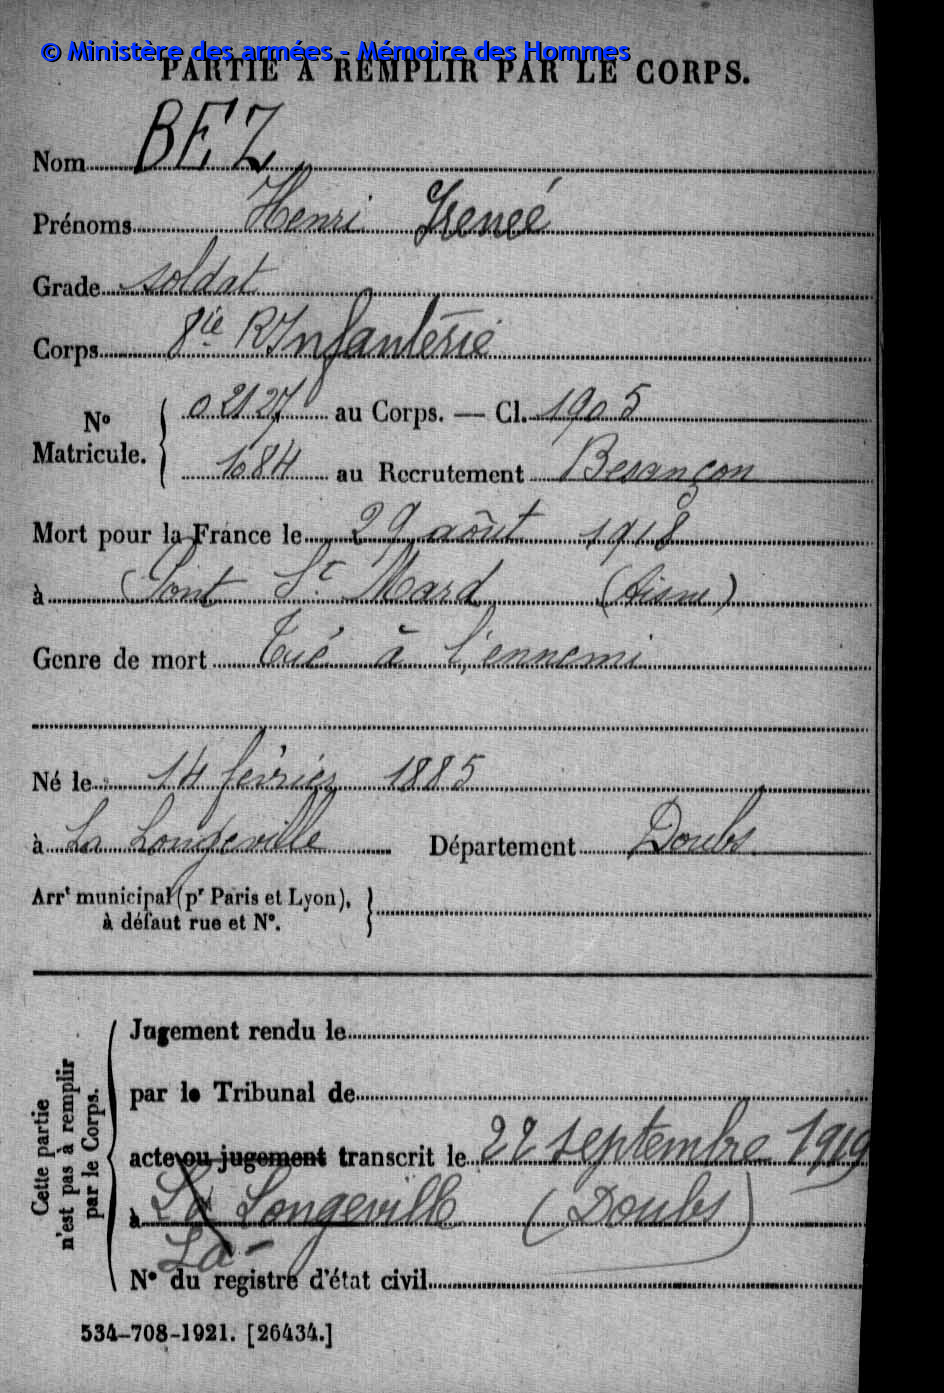 © Ministère des armées - Mémoire des Hommes
PARTIE A REMPLIR PAR LE CORPS.
Nom BEZ
Prénoms Henri Ireneé
Grade soldat
Corps 8ie R Infanterie
No Matricule. { 02127 au Corps. — Cl. 1905
1084 au Recrutement Besançon
Mort pour la France le 29 août 1918
à Pont St. Mard (Aisne)
Genre de mort Tué à l'ennemi
Né le 14 février 1885
à La Longeville Département Doubs.
Arrt municipal (pr Paris et Lyon), à défaut rue et No. }
Cette partie n'est pas à remplir par le Corps.
Jugement rendu le
par le Tribunal de
acte ou jugement transcrit le 22 septembre 1919
à La Longeville (Doubs)
La-
No du registre d'état civil
534-708-1921. [26434.]